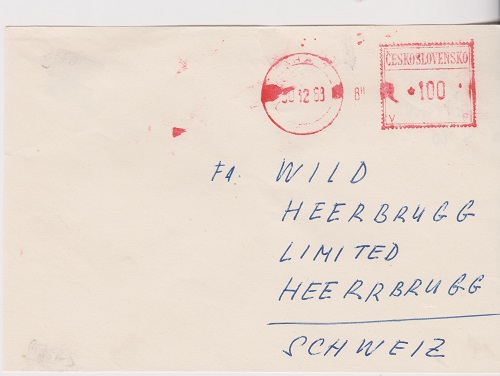 ČESKOSLOVENSKO
30 12 68 8H *100
V
Fa. WILD
HEERBRUGG
LIMITED
HEERRBRUGG
SCHWEIZ